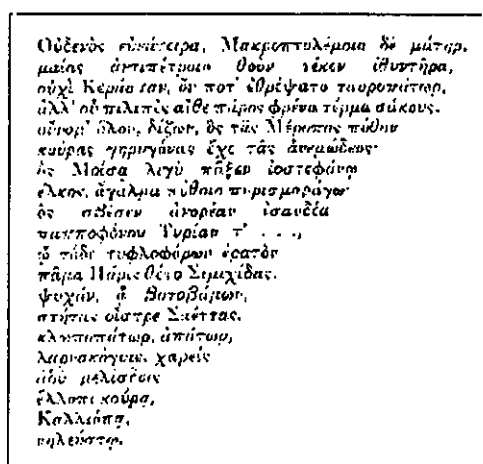 Οὐδενὸς εὐνάτειρα, Μακροπτολέμοιο δὲ μάτηρ,
μαίας ἀντιπέτροιο θοὸν τέκεν ἰθυντῆρα,
οὐχὶ Κεράσταν, ὅν ποτ' ἐθρέψατο ταυροπάτωρ,
ἀλλ' οὗ πιλιπὲς αἶθε πάρος φρένα τέρμα σάκους.
οὔνομ' ὅλον, δίζων, ὃς τᾶς Μέροπος πόθον
κούρας γηρυγόνας ἔχε τᾶς ἀνεμώδεος·
ὃς Μοίσᾳ λιγὺ πᾶξεν ἰοστεφάνῳ
ἕλκος, ἄγαλμα πόθοιο πυρισμαράγω·
ὃς σβέσεν ἀνορέαν ἰσαυδέα
παπποφόνου Τυρίαν τ' . . .,
ᾧ τόδε τυφλοφόρων ἐρατὸν
πᾶμα Πάρις θέτο Σιμιχίδας.
ψυχάν, ᾇ βροτοβάμων,
στήτας οἶστρε Σαέττας,
κλωποπάτωρ, ἀπάτωρ,
λαρνακόγυιε, χαρεὶς
ἁδὺ μελίσδοις
ἔλλοπι κούρᾳ,
Καλλιόπᾳ,
νηλεύστῳ.